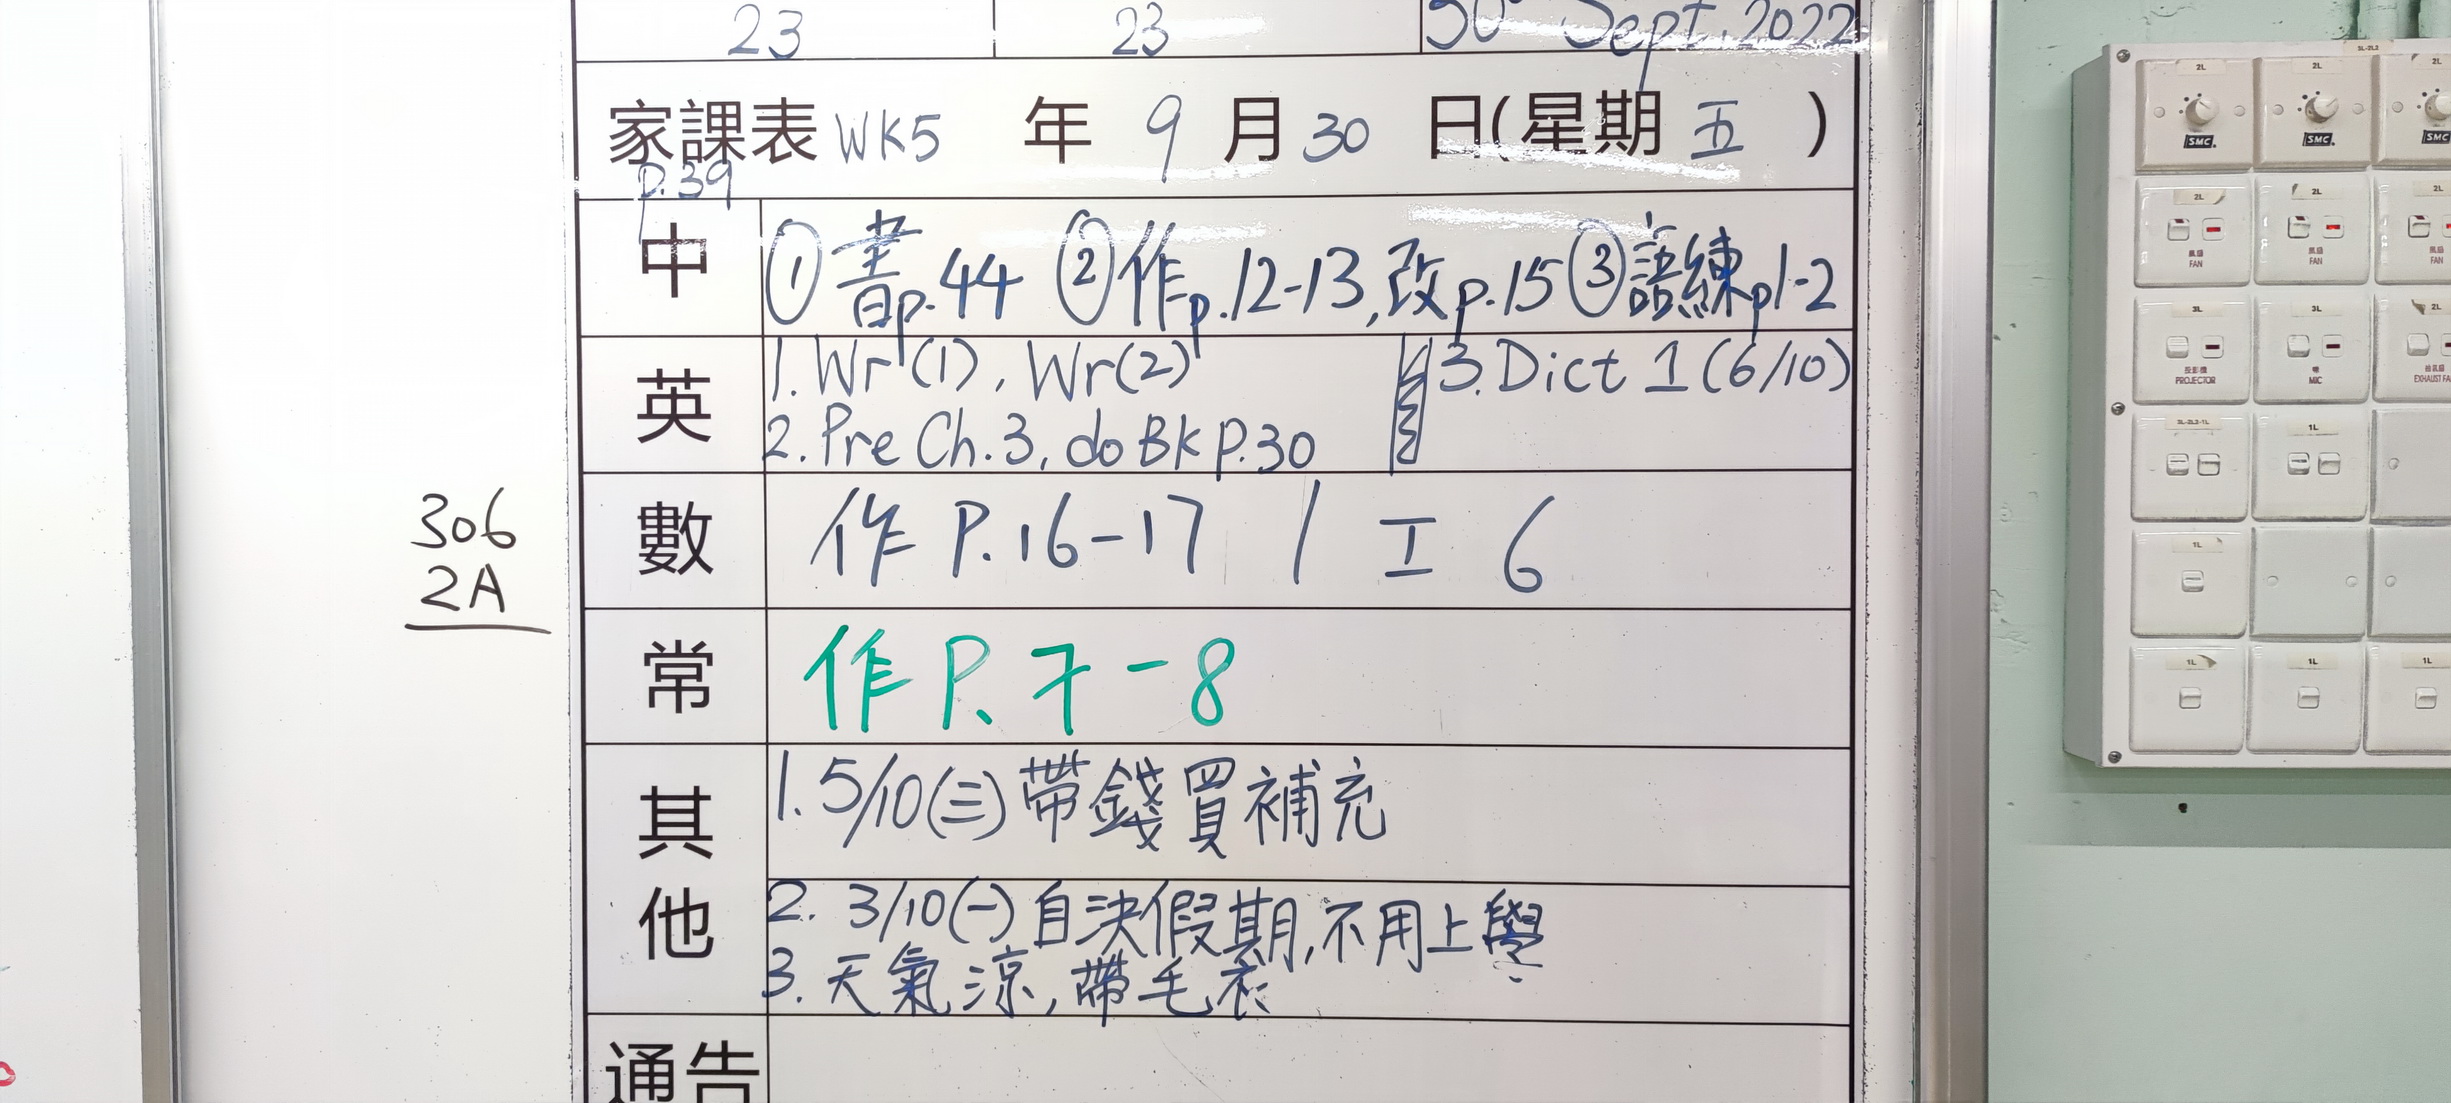 23 23 30 Sept. 2022
家課表 WK5 年 9 月 30 日(星期 五 )
p.39
中 ① 書p.44 ② 作p.12-13,改p.15 ③ 語練p1-2
英 1. Wr(1), Wr(2) 3. Dict 1 (6/10)
2. Pre Ch.3, do BK P.30
306
2A
數 作 P.16-17 / 工 6
常 作 P. 7-8
其他
1. 5/10(三)帶錢買補充
2. 3/10(一)自決假期,不用上學
3. 天氣涼,帶毛衣
通告
3L-2L2
2L 2L 2L
SMC SMC SMC
2L 2L 2L
風扇 風扇 風扇
FAN FAN FAN
3L 3L 2L
投影機
PROJECTOR MIC EXHAUST FA
3L-2L2-1L 1L
1L
1L 1L 1L